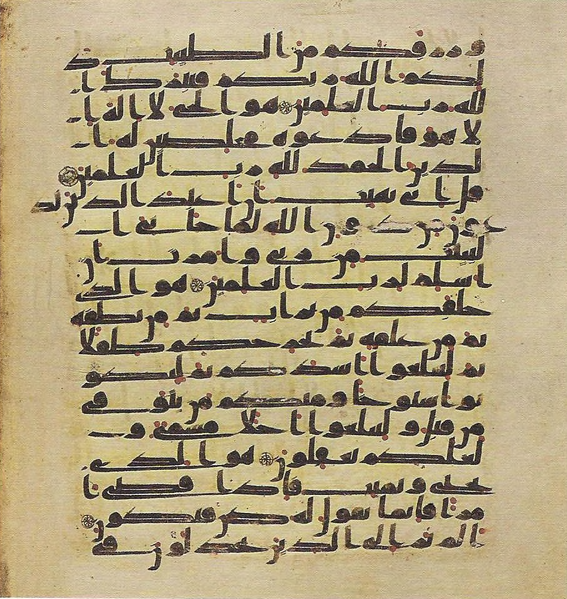 ورزقكم من الطيبت ذ
لكم الله ربكم فتبرك ا
لله رب العلمين هو الحي لا اله ا
لا هو فادعوه مخلصين له ا
لدين الحمد لله رب العلمين
قل اني نهيت ان اعبد الذين تد
عون من دون الله لما جاني ا
لبينت من ربي وامرت ان
اسلم لرب العلمين هو الذي
خلقكم من تراب ثم من نطفه
ثم من علقه ثم يخرجكم طفلا
ثم لتبلغوا اشدكم ثم لتكو
نوا شيوخا ومنكم من يتوفى
من قبل ولتبلغوا اجلا مسمى و
لعلكم تعقلون هو الذي
يحي ويميت فاذا قضى ا
مرا فانما يقول له كن فيكون
الم تر الى الذين يجدلون في